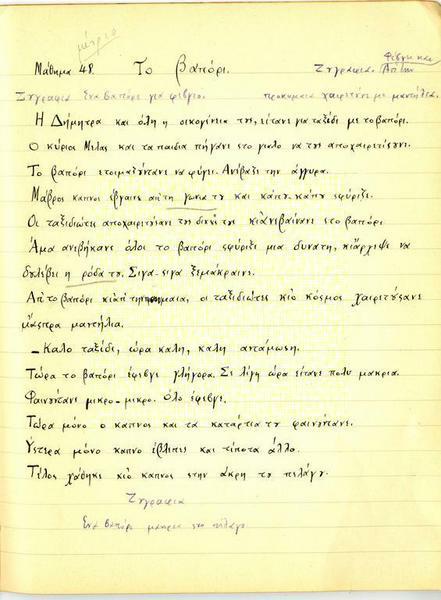 μέτριο
Μάθημα 48. Το Βαπόρι. Ζυγραφια. Φέβγι και
Ζυγραφια Ενα βαπόρι για φέβγιο. προκυμαια χαιρετύνε με μαντήλια.
Η Δήμητρα και όλη η οικογένια της, είτανε για ταξίδι με το βαπόρι.
Ο κύριος Μελας και τα παιδια πήγανε στο γιαλο να της αποχαιρετίσυν.
Το βαπόρι ετοιμαζύντανε να φύγι. Ανέβαζε την άγγυρα.
Μάβρος καπνος έβγαινε απ τη γωνια τυ και κάπυ κάπυ σφύριζε.
Οι ταξιδιώτες αποχαιρετύσανε τυς δικύς τυς κι ανεβαίνανε στο βαπόρι
Άμα ανεβήκανε όλοι το βαπόρι σφύριξε μια δυνατη, κι άρχιψε να
δυλέβει η ρόδα τυ. Σιγα-σιγα ξεμάκραινε.
Απ το βαπόρι κι απ τη προκυμαια, οι ταξιδιώτες κι ο κόσμος χαιρετύσανε
μ άσπρα μαντήλια.
– Καλο ταξίδι, ώρα καλη, καλη αντάμωση.
Τώρα το βαπόρι έφεβγε γλήγορα. Σε λίγη ώρα είτανε πολυ μακρια.
Φαινύτανε μικρο-μικρο. Όλο έφεβγε.
Τώρα μόνο ο καπνος και τα κατάρτια τυ φαινύντανε.
Ύστερα μόνο καπνο έβλεπες και τίποτα άλλο.
Τέλος χάθηκε κι ο καπνος στην άκρη τυ πελάγυ.
Ζυγραφια
Ενα βαπόρι μακρια στο πέλαγο.